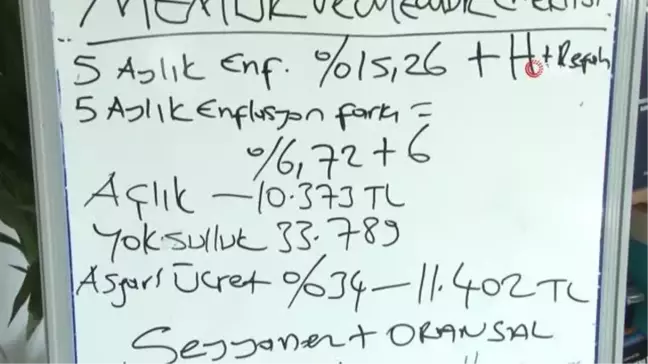 MEMUR VE MEMUR EMEKLİSİ
5 Aylık Enf. %15,26 + H + Refah
5 Aylık Enflasyon farkı =
%6,72 + 6
Açlık — 10.373 TL
Yoksulluk 33.789
Asgari Ücret %34 — 11.402 TL
Seyyanen + ORANSAL